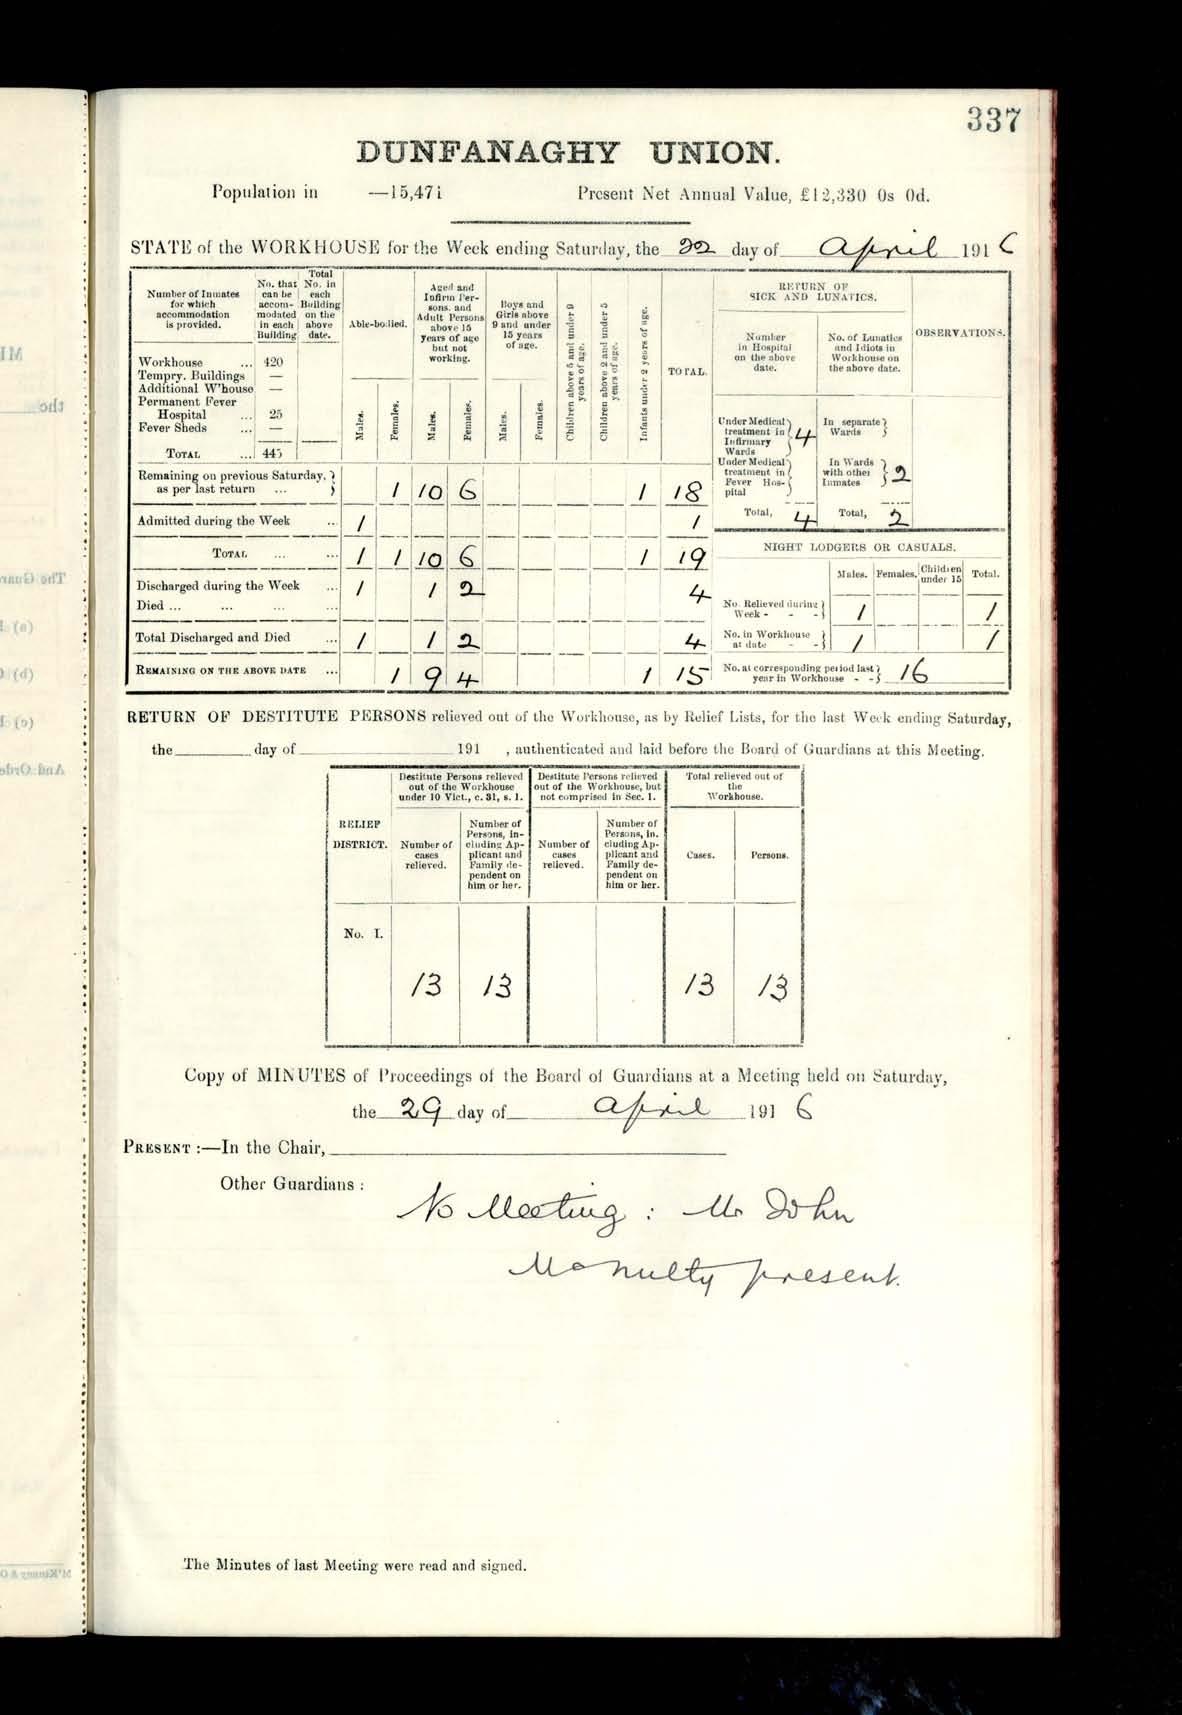 337
DUNFANAGHY UNION.
Population in —15,471 Present Net Annual Value, £12,330 0s 0d.
STATE of the WORKHOUSE for the Week ending Saturday, the 22 day of April 1916
Number of Inmates for which accommodation is provided.
No. that can be accommodated in each Building
Total No. in each Building on the above date.
Able-bodied.
Aged and Infirm Persons, and Adult Persons above 15 years of age but not working.
Boys and Girls above 9 and under 15 years of age.
Children above 5 and under 9 years of age.
Children above 2 and under 5 years of age.
Infants under 2 years of age.
TOTAL.
RETURN OF SICK AND LUNATICS.
Number in Hospital on the above date.
No. of Lunatics and Idiots in Workhouse on the above date.
OBSERVATIONS.
Workhouse ... 420
Tempry. Buildings —
Additional W'house —
Permanent Fever
Hospital ... 25
Fever Sheds ... —
TOTAL ... 445
Males. Females. Males. Females. Males. Females.
Under Medical treatment in Infirmary Wards 4
In separate Wards
Under Medical treatment in Fever Hospital
In Wards with other Inmates 2
Total, 4 Total, 2
Remaining on previous Saturday, as per last return ... 1 10 6 1 18
Admitted during the Week ... 1 1
TOTAL ... ... 1 1 10 6 1 19
Discharged during the Week ... 1 1 2 4
Died ... ... ... ...
Total Discharged and Died ... 1 1 2 4
REMAINING ON THE ABOVE DATE ... 1 9 4 1 15
NIGHT LODGERS OR CASUALS.
Males. Females. Children under 15 Total.
No. Relieved during Week - - - 1 1
No. in Workhouse at date - - 1 1
No. at corresponding period last year in Workhouse - - 16
RETURN OF DESTITUTE PERSONS relieved out of the Workhouse, as by Relief Lists, for the last Week ending Saturday,
the day of 191 , authenticated and laid before the Board of Guardians at this Meeting.
RELIEF DISTRICT.
Destitute Persons relieved out of the Workhouse under 10 Vict., c. 31, s. 1.
Destitute Persons relieved out of the Workhouse, but not comprised in Sec. 1.
Total relieved out of the Workhouse.
Number of cases relieved.
Number of Persons, including Applicant and Family dependent on him or her.
Number of cases relieved.
Number of Persons, in. cluding Applicant and Family dependent on him or her.
Cases. Persons.
No. I.
13 13 13 13
Copy of MINUTES of Proceedings of the Board of Guardians at a Meeting held on Saturday,
the 29 day of April 1916
PRESENT :—In the Chair,
Other Guardians :
No Meeting : Mr John
McNulty present.
The Minutes of last Meeting were read and signed.